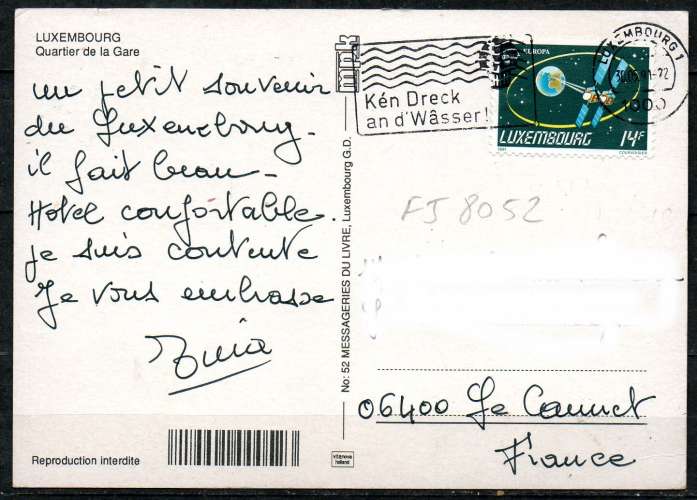 LUXEMBOURG
Quartier de la Gare
un petit souvenir
du Luxembourg -
il fait beau -
Hotel confortable.
je suis contente
Je vous embrasse
No: 52 MESSAGERIES DU LIVRE, Luxembourg G.D.
mpk
Kén Dreck
an d'Wâsser!
EUROPA
LUXEMBOURG 14F
LUXEMBOURG 1
1000
FJ 8052
06400 Le Cannet
France
Reproduction interdite